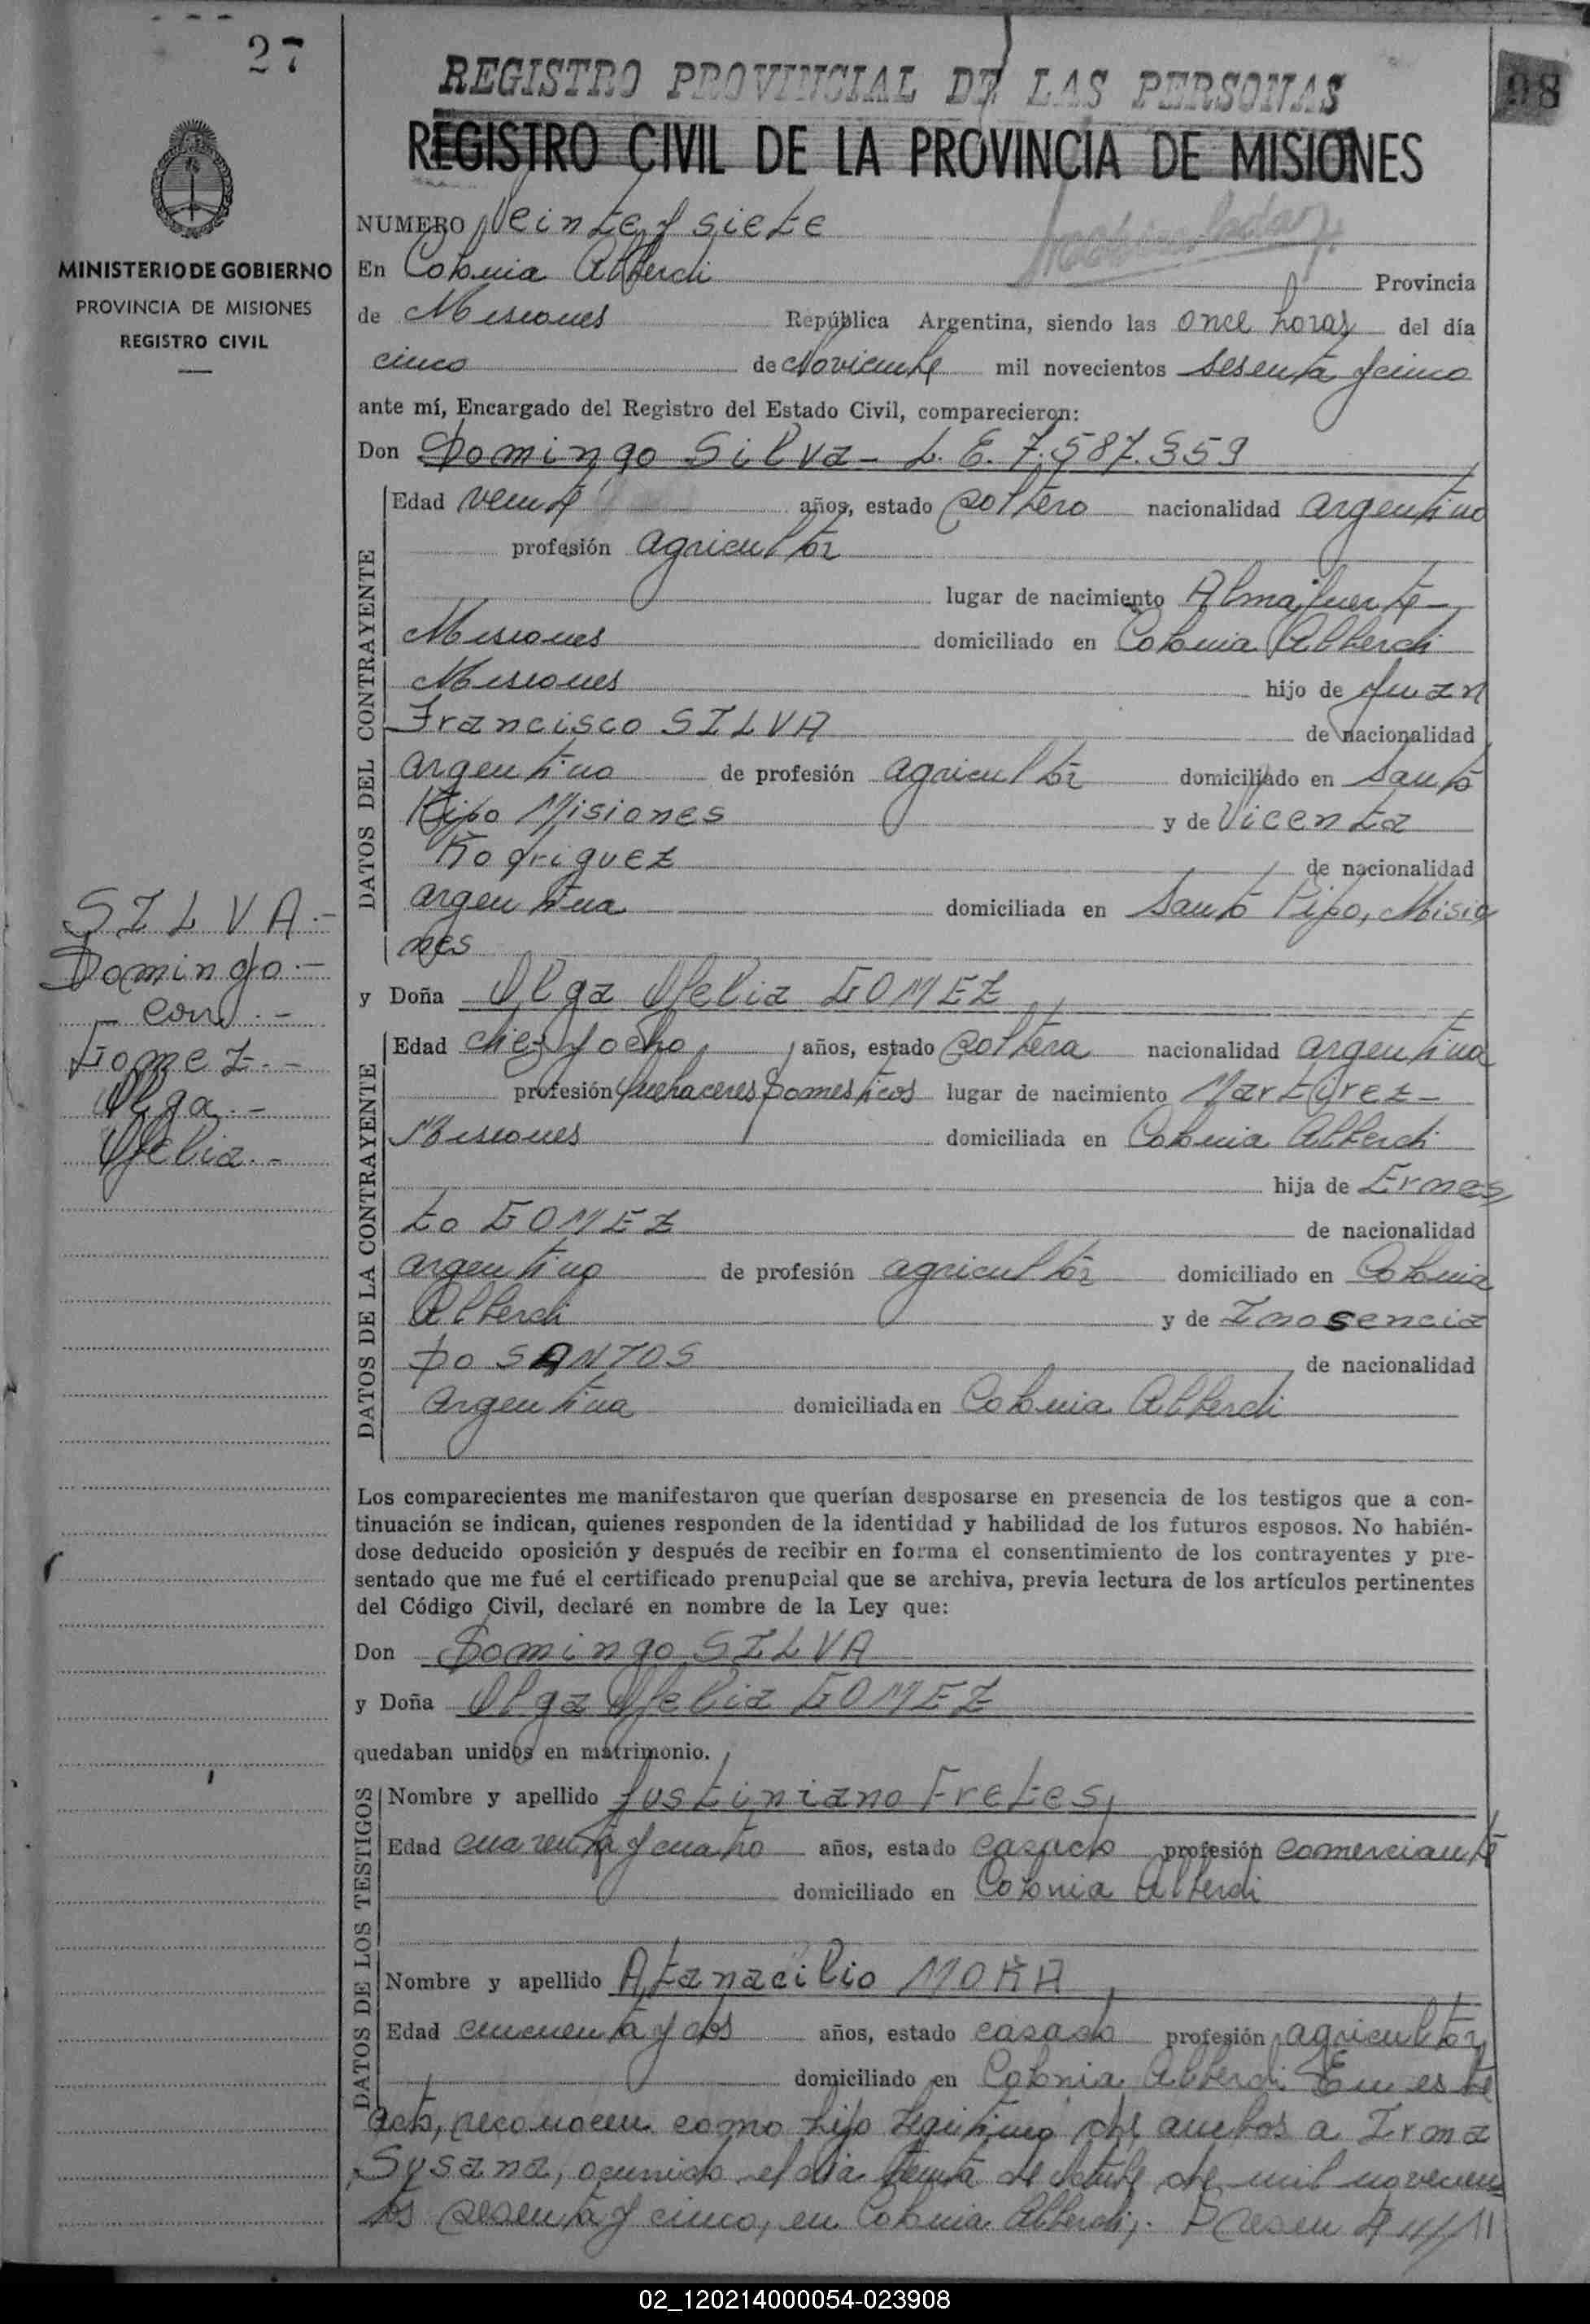 27
REGISTRO PROVINCIAL DE LAS PERSONAS
98
REGISTRO CIVIL DE LA PROVINCIA DE MISIONES
MINISTERIO DE GOBIERNO
PROVINCIA DE MISIONES
REGISTRO CIVIL
NUMERO Veinte y siete
En Colonia Alberdi Provincia
de Misiones República Argentina, siendo las once horas del día
cinco de Noviembre mil novecientos sesenta y cinco
ante mí, Encargado del Registro del Estado Civil, comparecieron:
Don Domingo Silva - L. E. 7.587.359
DATOS DEL CONTRAYENTE
Edad veinte años, estado soltero nacionalidad argentino
profesión agricultor
lugar de nacimiento Almafuerte -
Misiones domiciliado en Colonia Alberdi
Misiones hijo de Juan
Francisco SILVA de nacionalidad
argentino de profesión agricultor domiciliado en Santo
Pipo Misiones y de Vicenta
Rodriguez de nacionalidad
argentina domiciliada en Santo Pipo, Misio
nes
SILVA.-
Domingo.-
- con.-
Gomez.-
Olga.-
Ofelia.-
y Doña Olga Ofelia GOMEZ
DATOS DE LA CONTRAYENTE
Edad diez y ocho años, estado soltera nacionalidad argentina
profesión quehaceres domesticos lugar de nacimiento Martyrez -
Misiones domiciliada en Colonia Alberdi
hija de Ermes
to GOMEZ de nacionalidad
argentino de profesión agricultor domiciliado en Colonia
Alberdi y de Inosencia
Do SANTOS de nacionalidad
argentina domiciliada en Colonia Alberdi
Los comparecientes me manifestaron que querían desposarse en presencia de los testigos que a con-
tinuación se indican, quienes responden de la identidad y habilidad de los futuros esposos. No habién-
dose deducido oposición y después de recibir en forma el consentimiento de los contrayentes y pre-
sentado que me fué el certificado prenupcial que se archiva, previa lectura de los artículos pertinentes
del Código Civil, declaré en nombre de la Ley que:
Don Domingo SILVA
y Doña Olga Ofelia GOMEZ
quedaban unidos en matrimonio.
DATOS DE LOS TESTIGOS
Nombre y apellido Justiniano Fretes,
Edad cuarenta y cuatro años, estado casado profesión comerciante
domiciliado en Colonia Alberdi
Nombre y apellido Atanacilio MORA
Edad cincuenta y dos años, estado casado profesión agricultor
domiciliado en Colonia Alberdi En este
acto, reconocen como hijo legitimo de ambos a Irma
Susana, ocurrido el dia treinta de Octubre de mil novecien
tos sesenta y cinco, en Colonia Alberdi,.
02_120214000054-023908